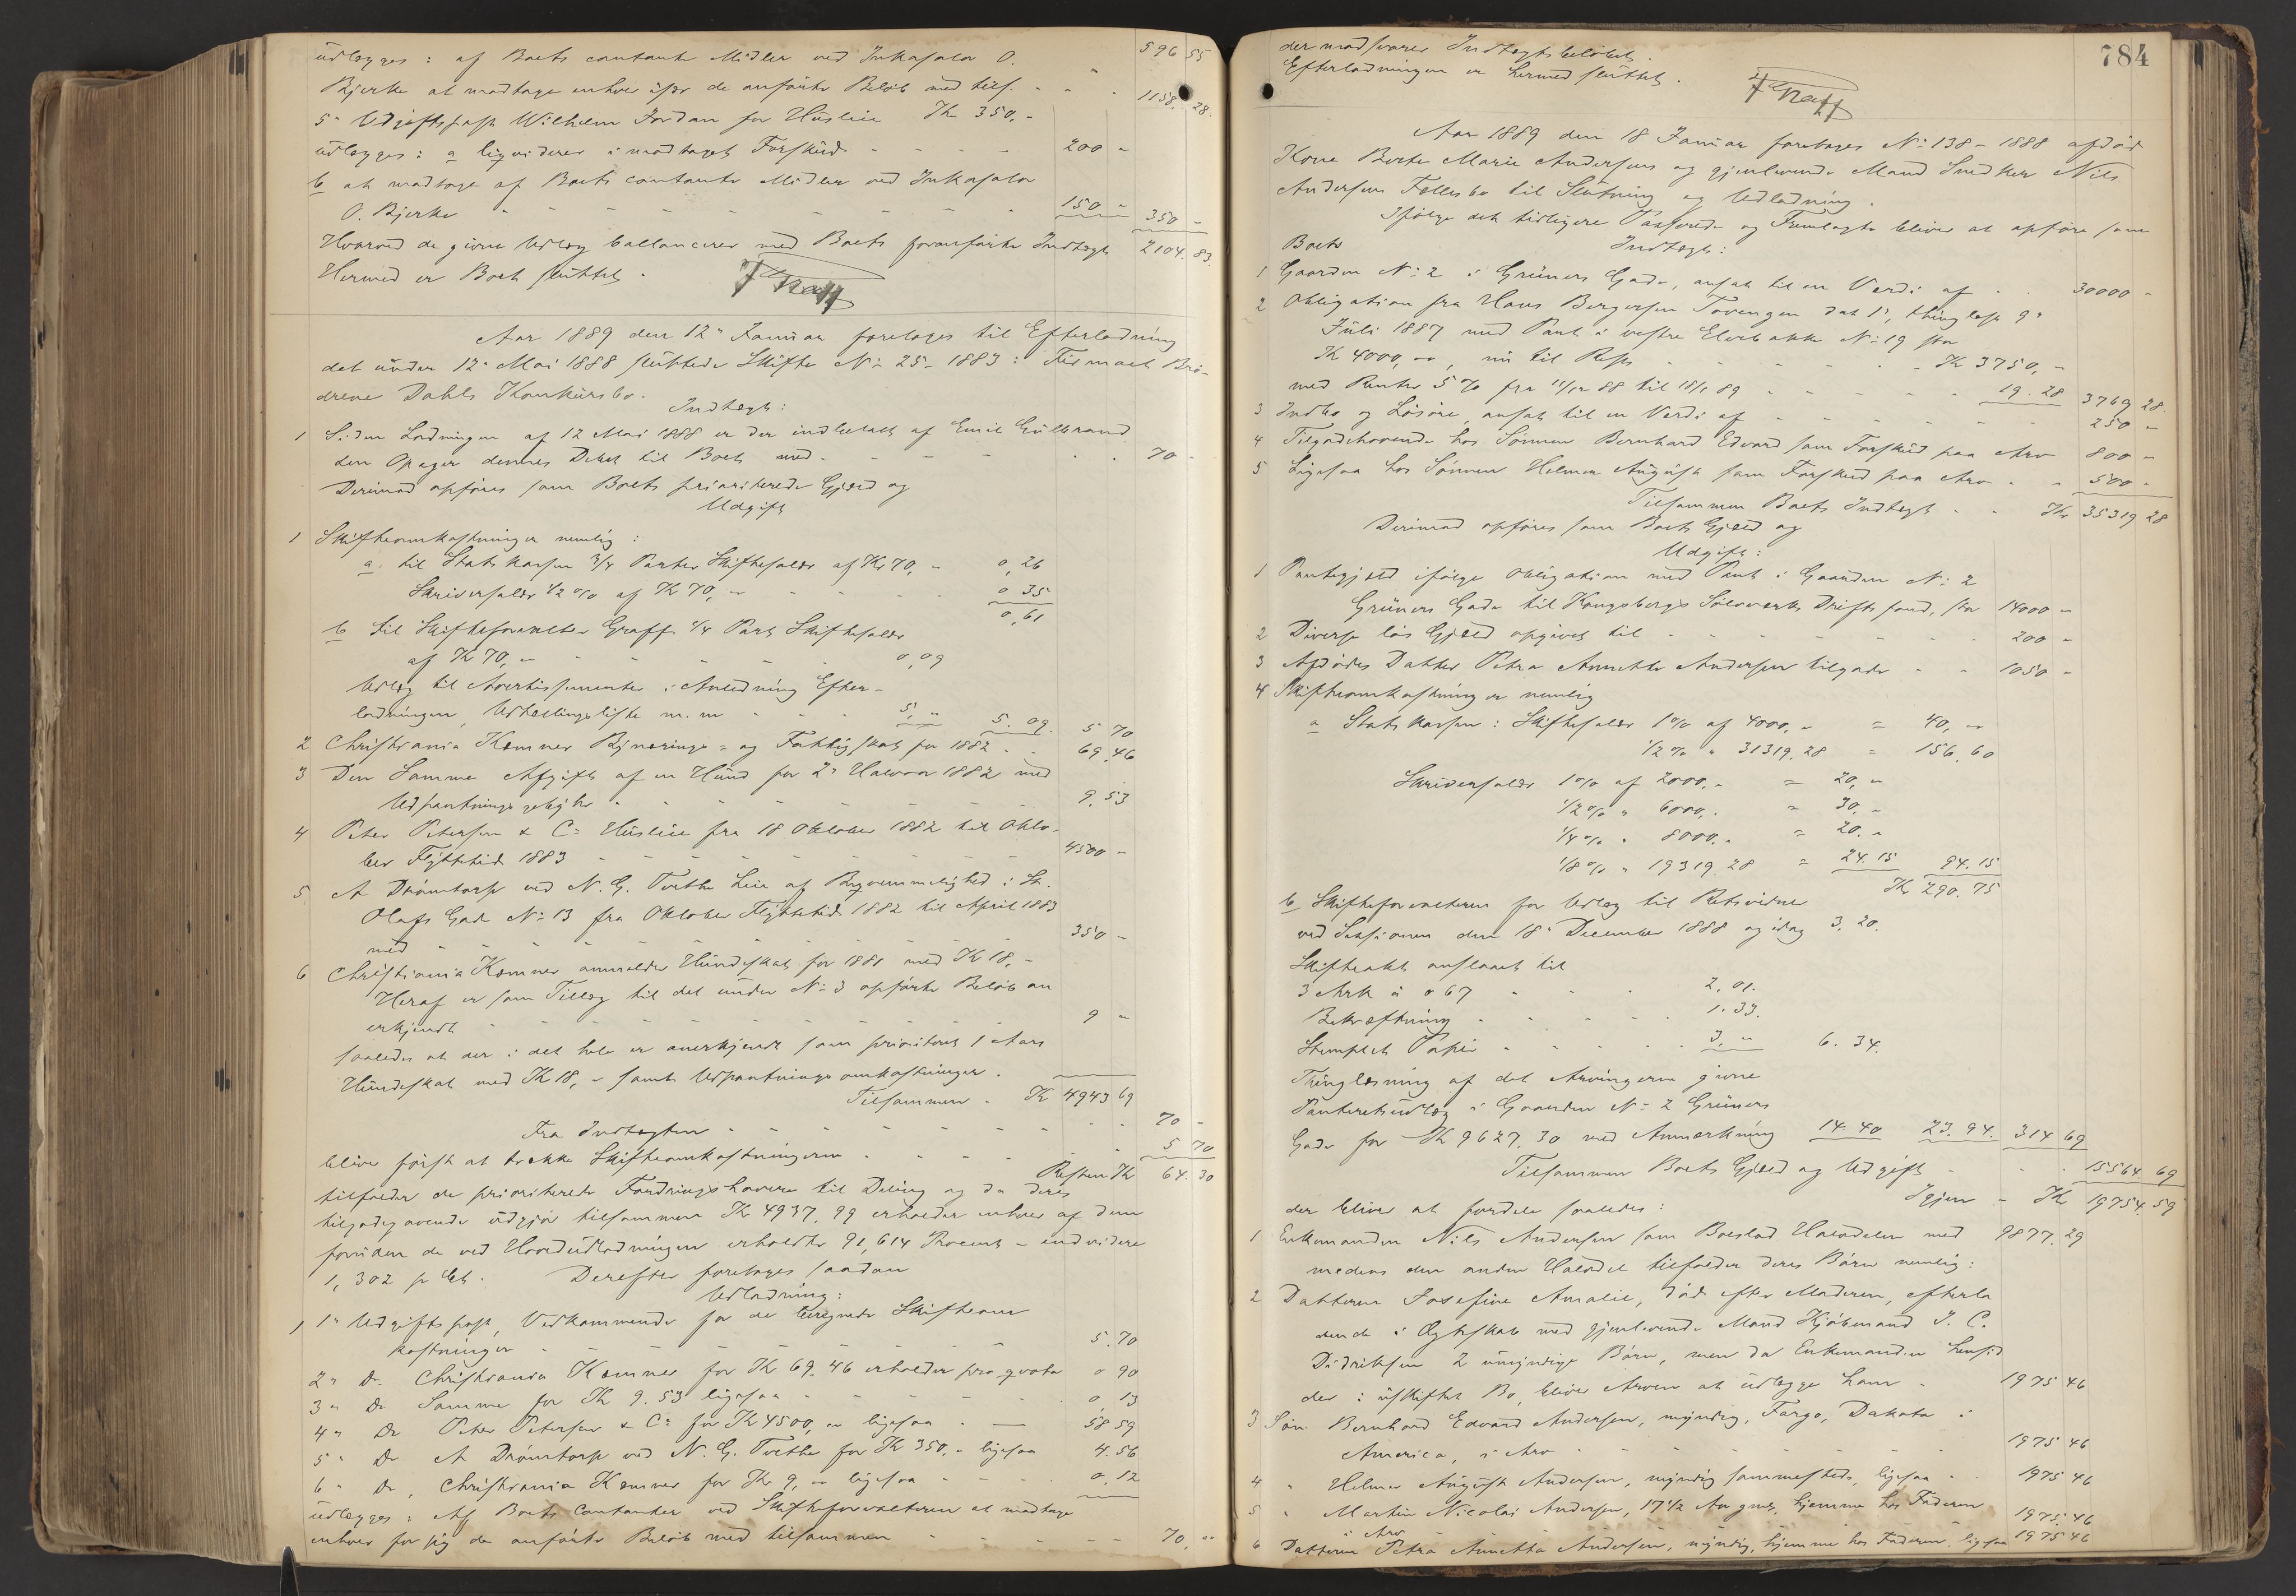 udlægges: af Boets contante Midler ved Inkasator O. 596 55
Bjerke at modtage enhver især de anførte Beløb med tils. - - - 1158. 28.
5" Udgiftspost Wilhelm Jordan for Husleie Kr 350,-
udlægges: a liqviderer i modtaget Forskud - - - - 200 -
b at modtage af Boets contante Midler ved Inkasator
O. Bjerke - - - - - - - - 150 - 350 -
Hvorved de givne Udlæg ballancerer med Boets foranførte Indtægt 2104. 83.
Hermed er Boet sluttet.
Aar 1889 den 12" Januar foretoges til Efterlodning
det under 12" Mai 1888 sluttede Skifte No 25-1883: Firmaet Brø-
drene Dahls Konkursbo.
Indtægt:
1 Siden Lodningen af 12 Mai 1888 er der indbetalt af Emil Gulbrand
den Opager dennes Debet til Boet med - - - - - 70 -
Derimod opføres som Boets prioriterede Gjæld og
Udgift
1 Skifteomkostninger nemlig:
a. til Statskassen 3/4 Parter Skiftesalær af Kr 70,- 0,26
Skriversalær 1/2 % af Kr 70,- - - - 0 35
0,61
b til Skifteforvalter Graff 1/4 Part Skiftesalær
af Kr 70,- - - - - 0,09
Udlæg til Avertissementer i Anledning Efter-
lodningen, Udbetalingsliste m.m - - - 5,- 5.09. 5 70
2 Christiania Kæmner Bynærings- og Fattigskat for 1882 - - 69.46
3 Den Samme Afgift af en Hund for 2" Halvaar 1882 med
Udpantningsgebyhr - - - - - - - 9.53
4 Peter Petersen & Co Husleie fra 18 Oktober 1882 til Okto-
ber Flyttetid 1883 - - - - - - - 4500 -
5 A Drømtorp ved N. G. Tvethe Leie af Beqvemmelighed i St.
Olafs Gade No 13 fra Oktober Flyttetid 1882 til April 1883
med - - - - - - - - 350 -
6 Christiania Kæmner anmelder Hundeskat for 1881 med Kr 18,-
Heraf er som Tillæg til det under No 3 opførte Beløb an
erkjendt - - - - - - - 9 -
saaledes at der i det hele er anerkjendt som prioriteret 1 Aars
Hundeskat med Kr 18,- samt Udpantningsomkostninger.
Tilsammen - Kr 4943 69
Fra Indtægten - - - - - - - 70 -
bliver først at trække Skifteomkostningerne - - - - 5 70
Resten Kr 64. 30
tilfalder de prioriterede Fordringshavere til Deling og da deres
tilgodehavende udgjør tilsammen Kr 4937,99 erholder enhver af dem
foruden de ved Hovedudlodningen erholdte 91,614 Procent - endvidere
1,302 p Ct. Derefter foretoges saadan
Udlodning:
1 1" Udgiftspost, Vedkommende for de beregnede Skifteom
kostninger - - - - - - - 5.70
2" Do Christiania Kæmner for Kr 69.46 erholder pro qvota 0 90
3" Do Samme for Kr 9.53 ligesaa - - - - 0 13
4" Do Peter Petersen & Co for Kr 4500,- ligesaa - - 58 59
5" Do A Drømtorp ved N. G. Tvethe for Kr 350,- ligesaa 4.56
6" Do, Christiania Kæmner for Kr 9,- ligesaa - - - 0,12
udlægges: Af Boets Contanter ved Skifteforvalteren at modtage
enhver for sig de anførte Beløb med tilsammen - - - 70,-
784
der modsvarer Indtægtsbeløbet.
Efterlodningen er hermed sluttet.
Aar 1889 den 18 Januar foretoges No 138-1888 afdød
Kone Berte Marie Andersens og gjenlevende Mand Snedker Nils
Andersens Fællesbo til Slutning og Udlodning.
Ifølge det tidligere Passerede og Fremlagte bliver at opføre som
Boets Indtægt:
1 Gaarden No 2 i Grüners Gade, ansat til en Verdi af - - 30000 -
2 Obligation fra Hans Bergersen Tovengen dat 1", thinglæst 9"
Juli 1887 med Pant i vestre Elvebakke No 19 stor
Kr 4000,-, nu til Rest - - - - - Kr 3750,-
med Renter 5 % fra 11/12 88 til 18/1 89 - - - - 19.28 3769 28.
3 Indbo og Løsøre, ansat til en Verdi af - - - - - 250 -
4 Tilgodehavende hos Sønnen Bernhard Edvard som Forskud paa Arv 800 -
5 Ligesaa hos Sønnen Helmer August som Forskud paa Arv - - 500 -
Tilsammen Boets Indtægt - - Kr 35319 28
Derimod opføres som Boets Gjæld og
Udgift:
1 Pantegjæld ifølge Obligation med Pant i Gaarden No 2
Grüners Gade til Kongsbergs Sølvværks Driftsfond, stor 14000 -
2 Diverse løs Gjæld opgivet til - - - - - - 200 -
3 Afdødes Datter Petra Annette Andersen tilgode - - 1050 -
4 Skifteomkostninger nemlig
a Statskassen: Skiftesalær 1 % af 4000,- = 40,-
1/2 % " 31319.28 = 156.60
Skriversalær 1 % af 2000,- = 20,-
1/2 % " 6000,- = 30,-
1/4 % " 8000,- = 20.-
1/8 % " 19319.28 = 24.15 94.15
Kr 290.75
b Skifteforvalteren for Udlæg til Retsvidne
ved Sessionen den 18" December 1888 og idag 3.20.
Skifteakt anslaaet til
3 Ark à 0 67 - - - 2.01.
Bekræftning - - - - 1.33.
Stemplet Papir - - - - 3.- 6.34.
Thinglæsning af det Arvingerne givne
Panteretsudlæg i Gaarden No 2 Grüners
Gade for Kr 9627.30 med Anmærkning 14.40 23.94. 314 69
Tilsammen Boets Gjæld og Udgift - - - 15564.69
Igjen - Kr 19754.59
der bliver at fordele saaledes:
1 Enkemanden Nils Andersen som Boeslod Halvdelen med 9877.29
medens den anden Halvdel tilfalder deres Børn nemlig:
2 Datteren Josefine Amalie, død efter Moderen, efterla
dende i Ægteskab med gjenlevende Mand Kjøbmand J. C.
Didriksen 2 umyndige Børn, men da Enkemanden hensid
der i uskiftet Bo, bliver Arven at udlægge ham - 1975 46
3 Søn Bernhard Edvard Andersen, myndig, Fargo, Dakota i
America, i Arv - - - - - - - 1975 46
4 " Helmer August Andersen, myndig sammesteds, ligesaa - 1975 46
5 " Martin Nicolai Andersen, 17 1/2 Aar gml, hjemme hos Faderen
i Arv 1975.46
6 Datteren Petra Annetta Andersen, myndig, hjemme hos Faderen, ligesaa 1975 46